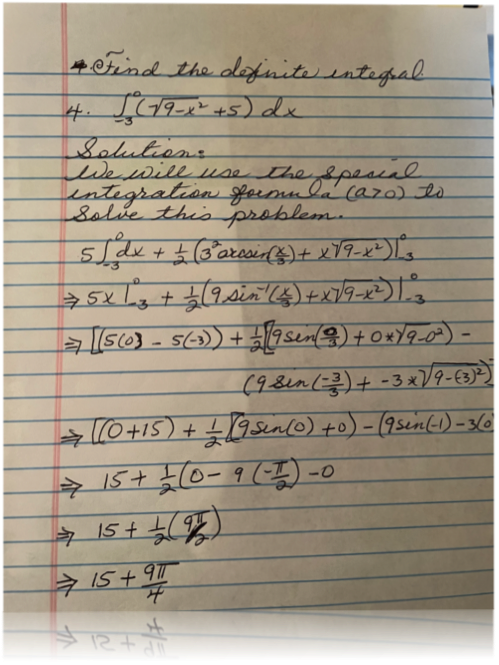 Find the definite integral
4. ∫₋₃⁰ (√9-x² + 5) dx
Solution:
We will use the special
integration formula (a>0) to
solve this problem.
5∫₋₃⁰ dx + 1/2 (3² arcsin(x/3) + x√9-x²)|₋₃⁰
⇒ 5x|₋₃⁰ + 1/2 (9 sin⁻¹(x/3) + x√9-x²)|₋₃⁰
⇒ [(5(0) - 5(-3)) + 1/2[9 sin(0/3) + 0*√9-0²) -
(9 sin(-3/3) + -3*√9-(-3)²)
⇒ [(0+15) + 1/2[9 sin(0) + 0) - (9 sin(-1) - 3(0
⇒ 15 + 1/2(0 - 9(-π/2) - 0
⇒ 15 + 1/2(9π/2)
⇒ 15 + 9π/4